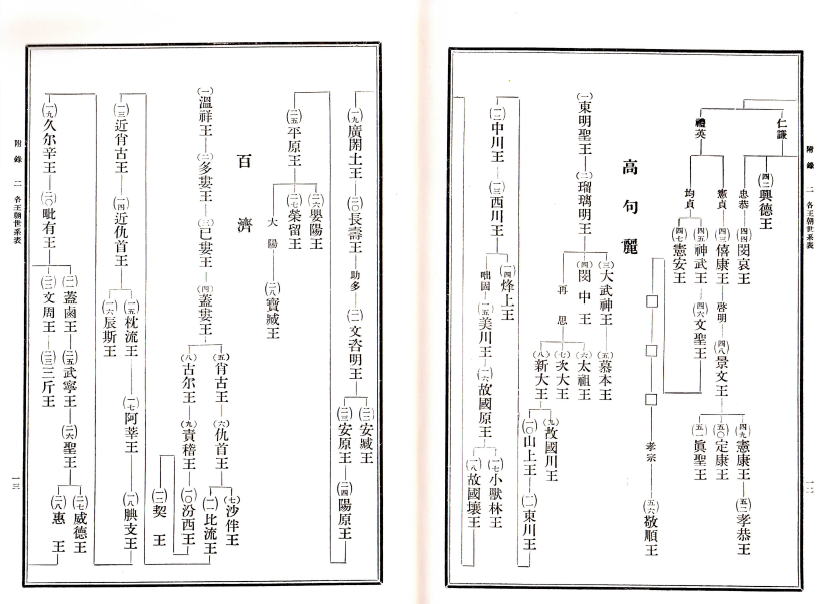 附錄 二 各王朝世系表
一二
仁謙
(四二)興德王
忠恭
(四四)閔哀王
禮英
憲貞
(四三)僖康王
啓明
(四八)景文王
(四九)憲康王
(五二)孝恭王
(五〇)定康王
(五一)眞聖王
均貞
(四五)神武王
(四六)文聖王
(四七)憲安王
□
□
□
孝宗
(五六)敬順王
高句麗
(一)東明聖王
(二)瑠璃明王
(三)大武神王
(五)慕本王
(四)閔中王
再思
(六)太祖王
(七)次大王
(八)新大王
(九)故國川王
(一〇)山上王
(一一)東川王
(一二)中川王
(一三)西川王
(一四)烽上王
咄固
(一五)美川王
(一六)故國原王
(一七)小獸林王
(一八)故國壤王
(一九)廣開土王
(二〇)長壽王
助多
(二一)文咨明王
(二二)安臧王
(二三)安原王
(二四)陽原王
(二五)平原王
(二六)嬰陽王
(二七)榮留王
大陽
(二八)寶臧王
百濟
(一)溫祥王
(二)多婁王
(三)已婁王
(四)蓋婁王
(五)肖古王
(六)仇首王
(七)沙伴王
(一一)比流王
(八)古尔王
(九)責稽王
(一〇)汾西王
(一二)契王
(一三)近肖古王
(一四)近仇首王
(一五)枕流王
(一七)阿莘王
(一八)腆支王
(一六)辰斯王
(一九)久尔辛王
(二〇)毗有王
(二一)蓋鹵王
(二五)武寧王
(二六)聖王
(二七)威德王
(二八)惠王
(二二)文周王
(二三)三斤王
附錄 二 各王朝世系表
一三